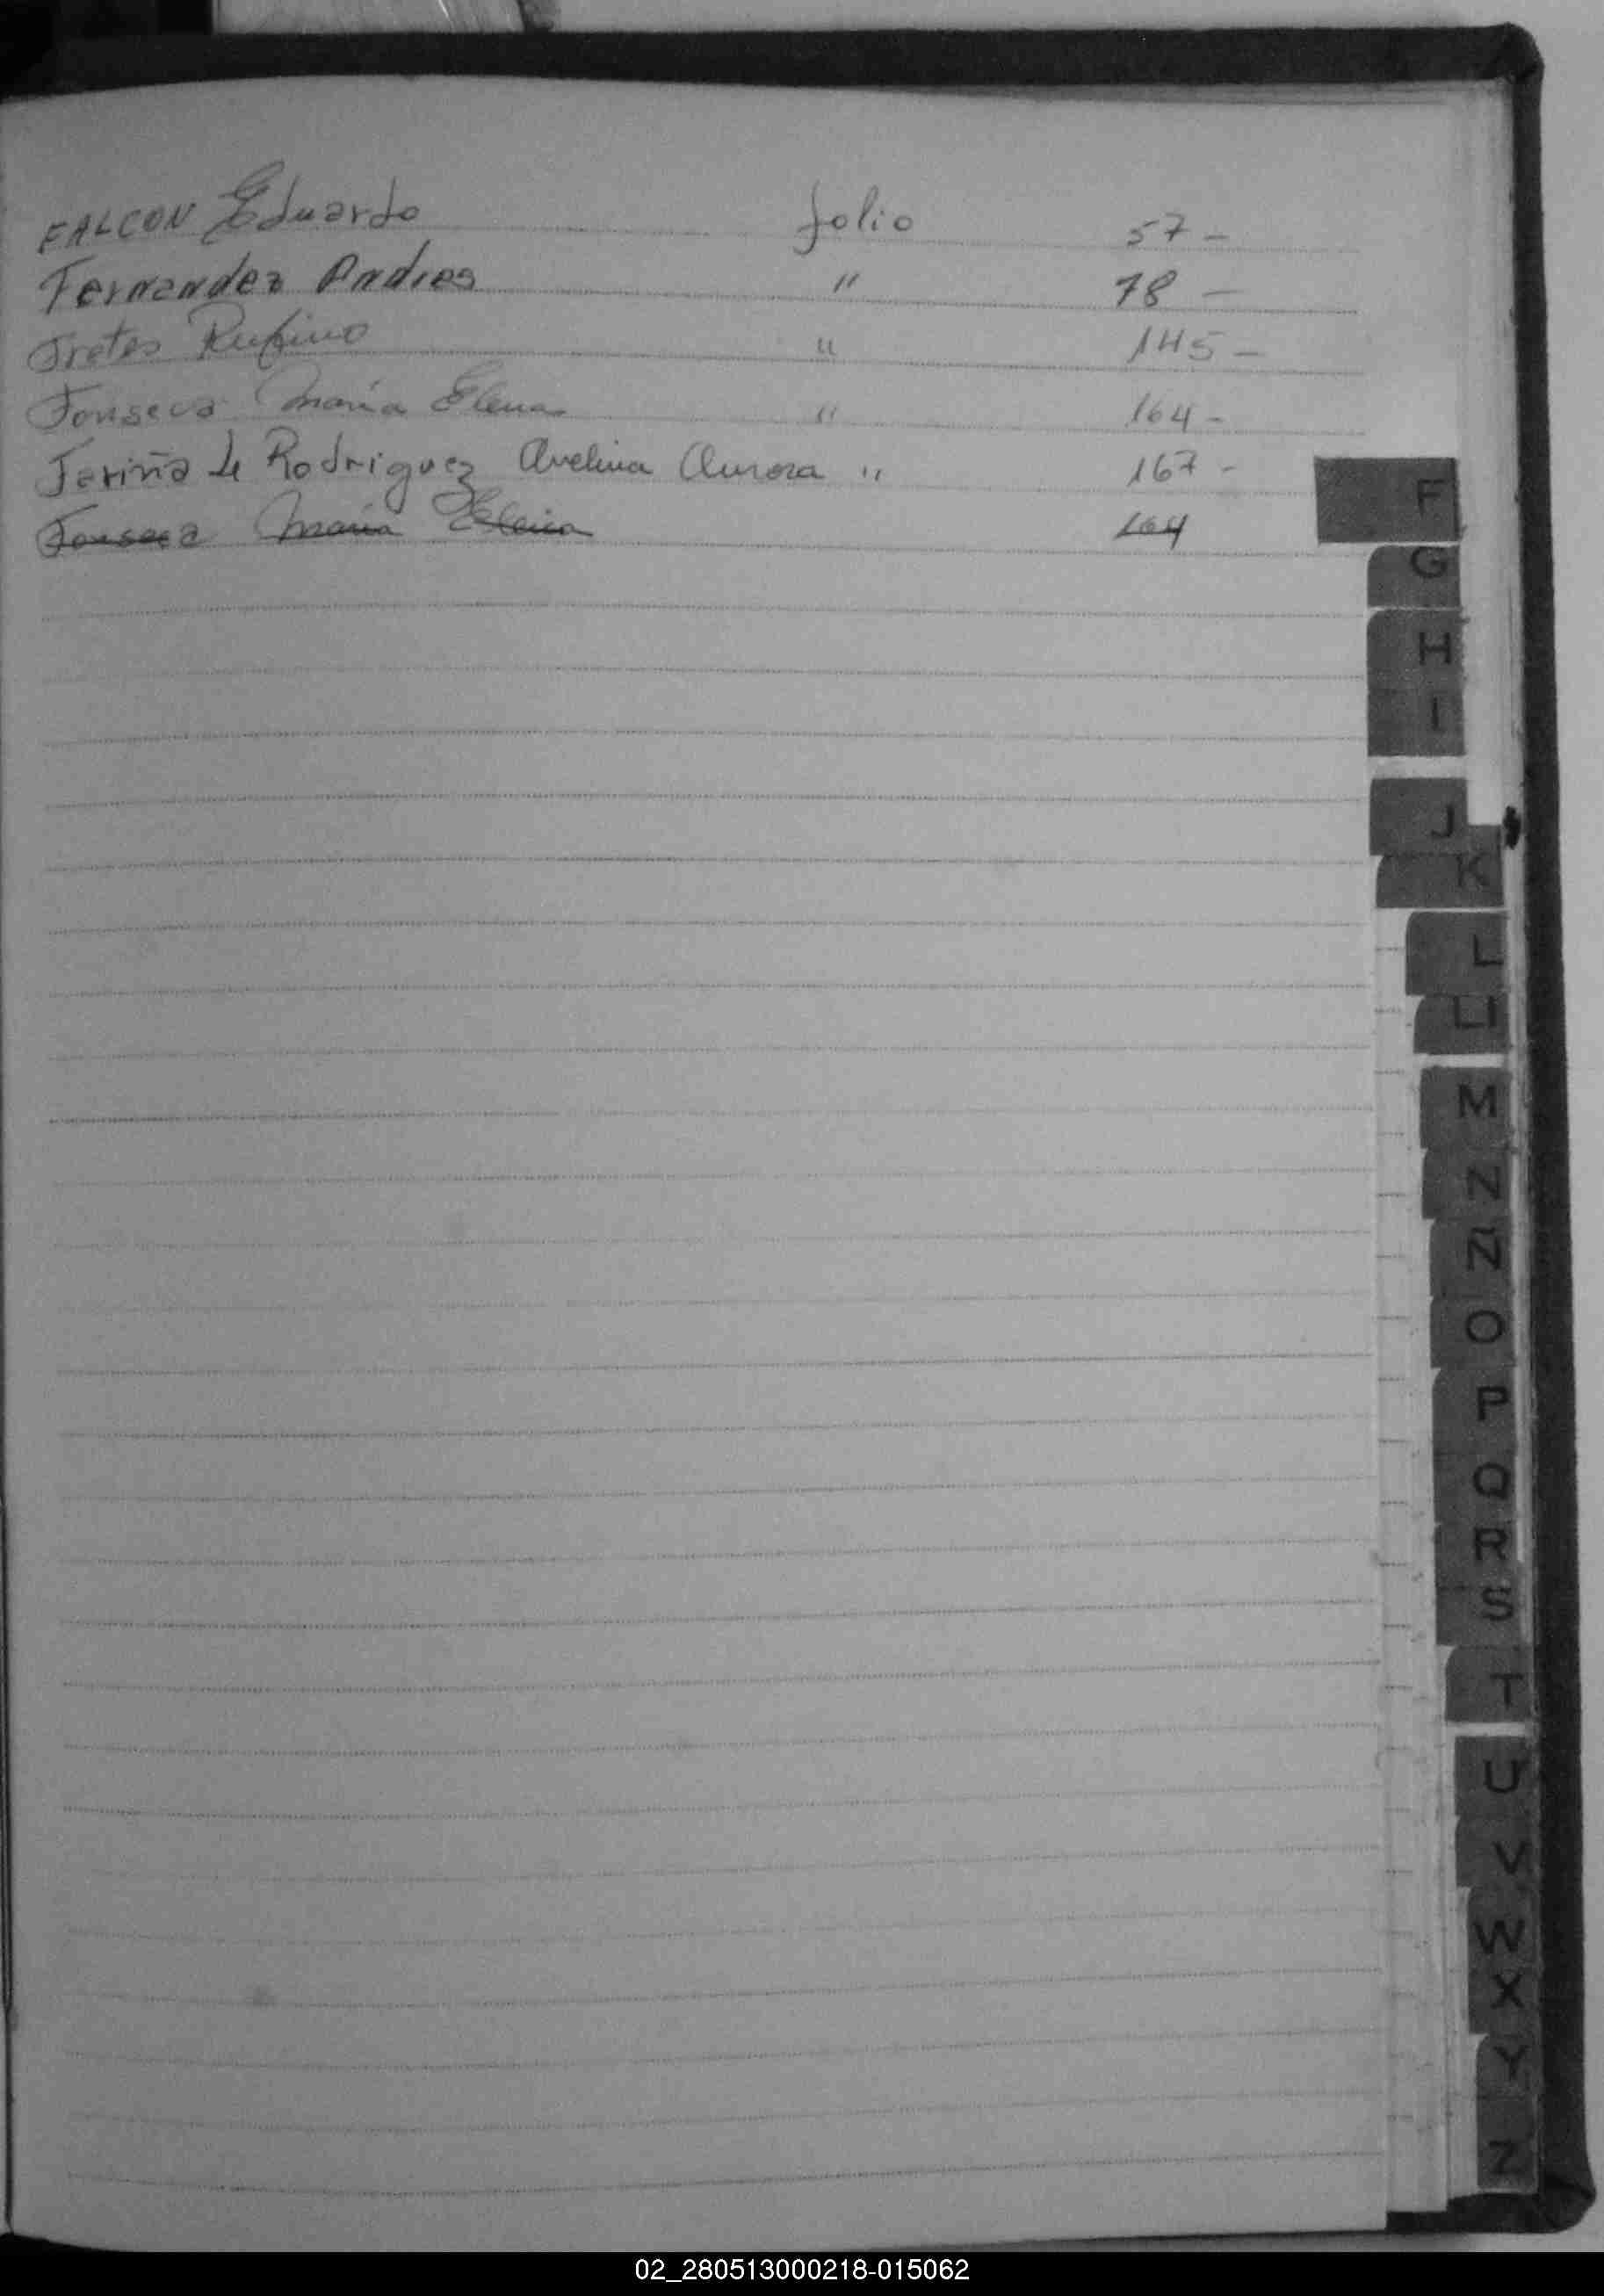 FALCON Eduardo folio 57 -
Fernandez Andres " 78 -
Fretes Rufino " 145 -
Fonseca María Elena " 164 -
Fariña de Rodriguez Avelina Aurora " 167 -
Fonseca María Elena 164
F
G
H
I
J
K
L
Ll
M
N
Ñ
O
P
Q
R
S
T
U
V
W
X
Y
Z
02_280513000218-015062